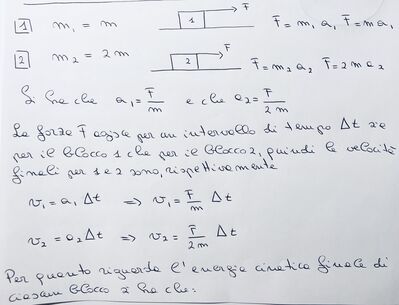 1 m₁ = m 1 F F = m₁ a₁ F = m a₁
2 m₂ = 2m 2 F F = m₂ a₂ F = 2m a₂
Si ha che a₁ = F/m e che a₂ = F/2m
La forza F agisce per un intervallo di tempo Δt sia
per il blocco 1 che per il blocco 2, quindi le velocità
finali per 1 e 2 sono, rispettivamente
v₁ = a₁ Δt ⇒ v₁ = F/m Δt
v₂ = a₂ Δt ⇒ v₂ = F/2m Δt
Per quanto riguarda l'energia cinetica finale di
ciascun blocco si ha che: